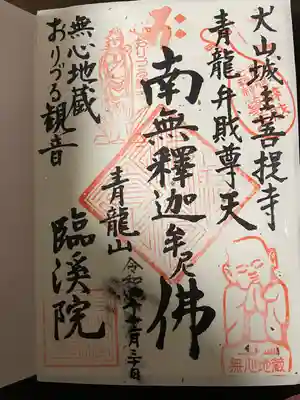 犬山城主菩提寺
青龍弁財尊天
南無釋迦牟尼佛
青龍山
令和
月三十日
臨溪院
無心地蔵
おりづる観音
無心地蔵